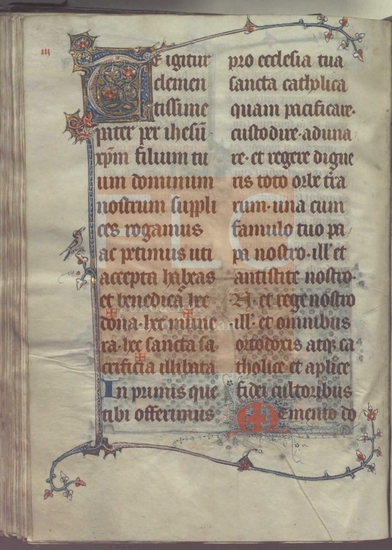 III
Te igitur
clemen
tissime
pater per ihesū
xp̄m filium tu
um dominum
nostrum suppli
ces rogamus
ac petimus uti
accepta habeas
et benedicas hec
dona· hec mune
ra· hec sancta sa
crificia illibata
In primis que
tibi offerimus
pro ecclesia tua
sancta catholica
quam pacificare·
custodire· aduna
re· et regere digne
ris toto orbe tra
rum· una cum
famulo tuo pa
pa nostro· ill' et
antistite nostro·
N· et rege nostro
ill· et omnibus
ortodoxis atq; ca
tholice et aplice
fidei cultoribus
Memento do